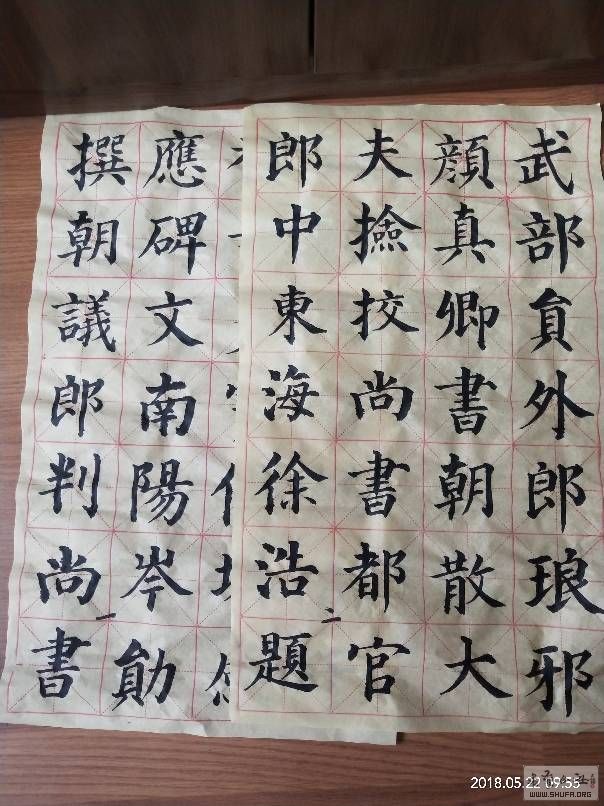 應碑文南陽岑勛
撰朝議郎判尚書
一
武部貟外郎琅邪
顏真卿書朝散大
夫撿挍尚書都官
郎中東海徐浩題
二
2018.05.22 09:55
WWW.SHUFA.ORG